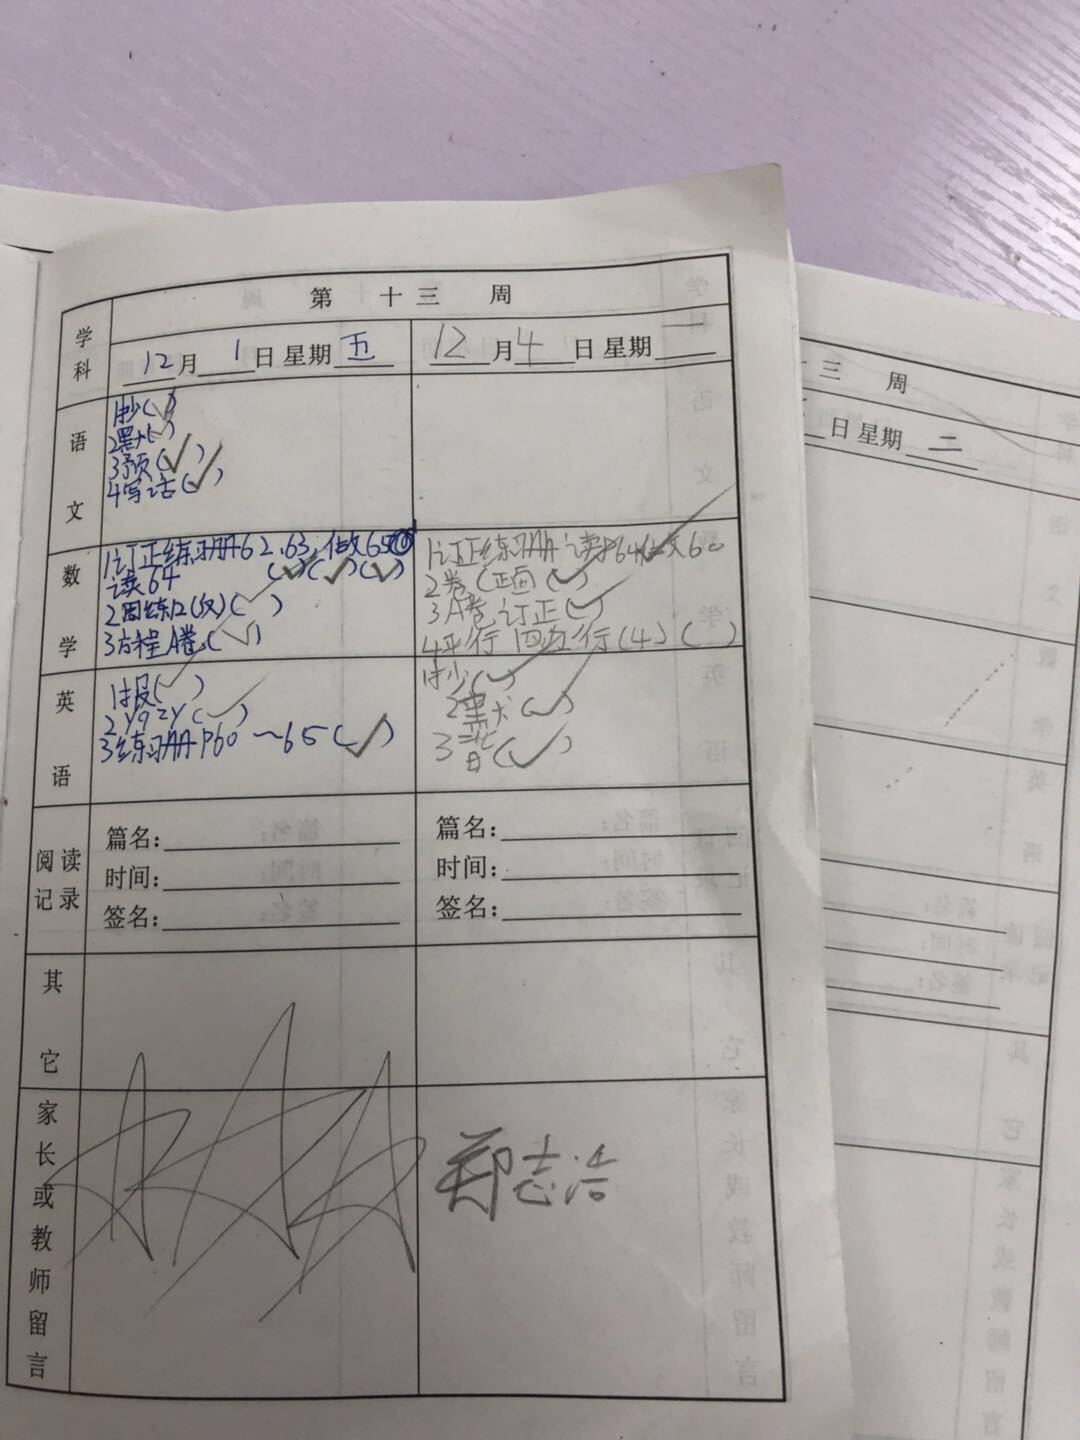 第 十三 周
学科
12月1日 星期 五
12月4日 星期
语文
1抄(✓)
2默(✓)
3预(✓)
4写话(✓)
数学
1订正练习册P62.63,做65
读64 (✓)(✓)(✓)
2周练12(反)(✓)
3方程A卷(✓)
1订正练习 读P64
2卷(正面(✓)
3A卷订正(✓)
4平行 四边行(4)( )
英语
1报(✓)
2 y9zy(✓)
3练习 P60~65(✓)
1抄(✓)
2默(✓)
3背(✓)
阅读记录
篇名:
时间:
签名:
篇名:
时间:
签名:
其它
家长或教师留言
郑志浩
三 周
日 星期 二